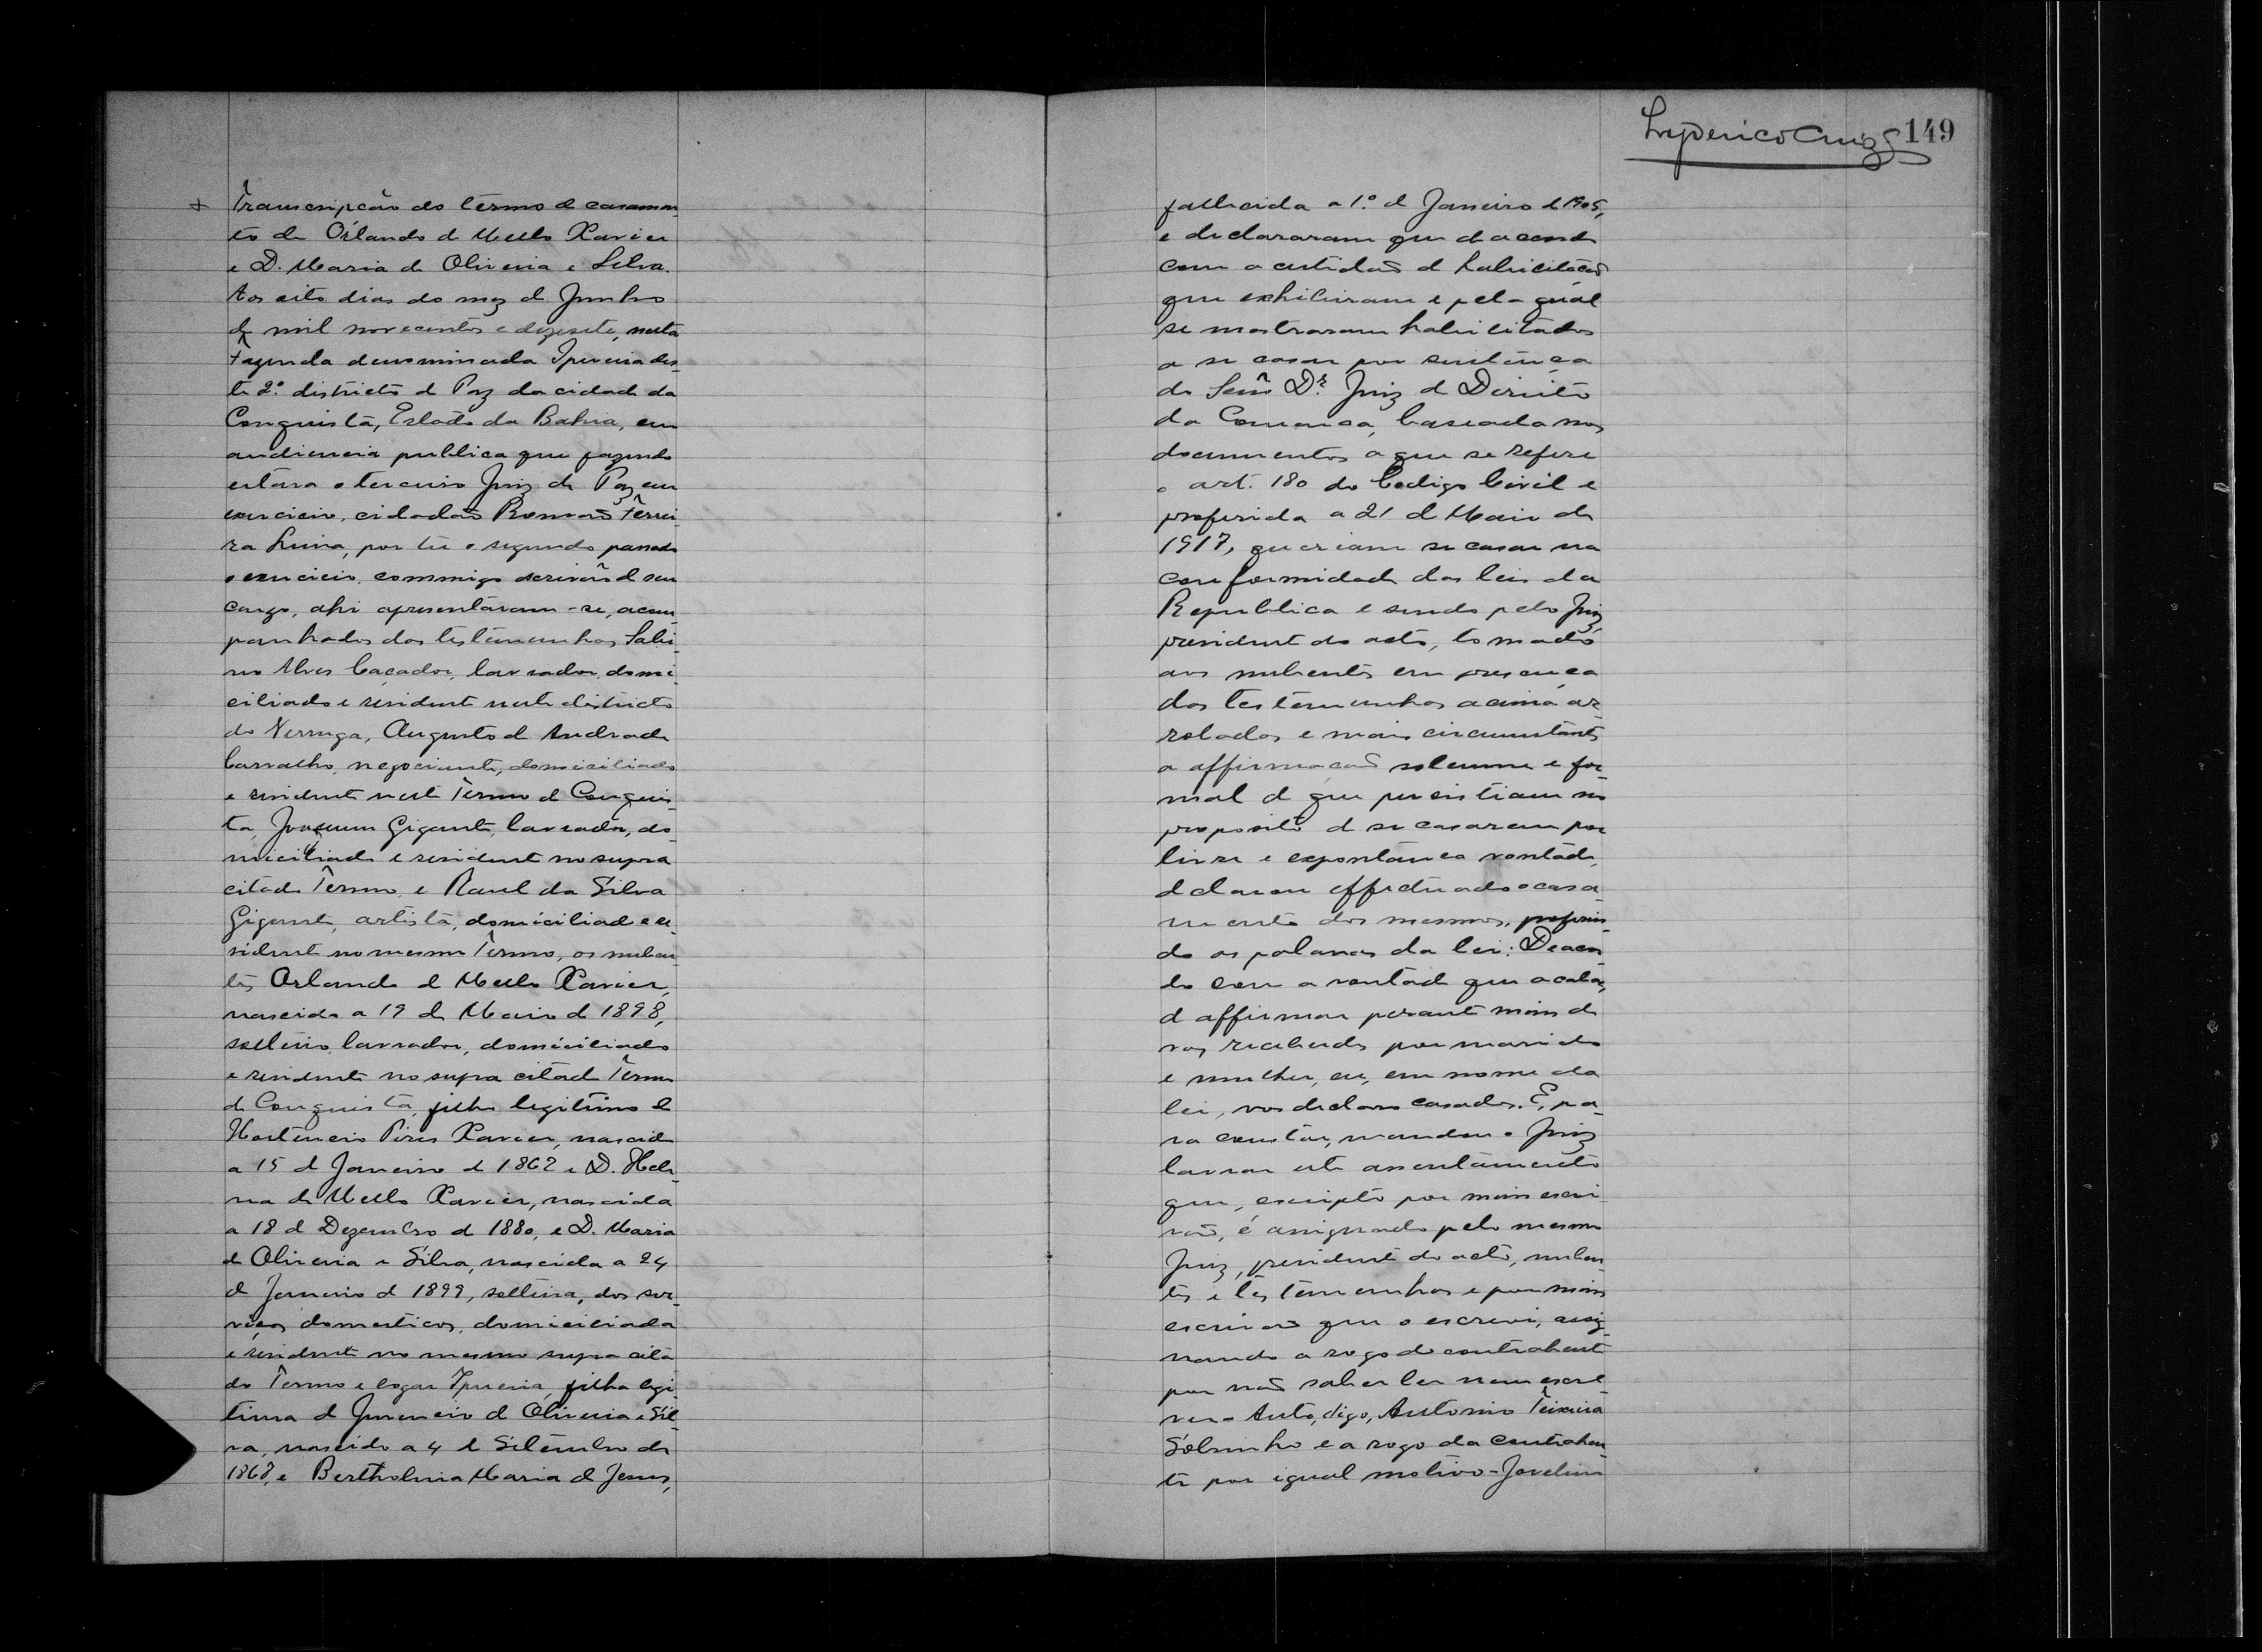 Transcripção do termo de casamen-
to de Orlando de Mello Xavier
e D. Maria de Oliveira e Silva.
Aos oito dias do mez de Junho
de mil novecentos e dezesete, nesta
Fazenda denominada Ipueira des-
te 2º districto de Paz da cidade da
Conquista, Estado da Bahia, em
audiencia publica que fazendo
estava o terceiro Juiz de Paz em
exercicio, cidadão Romão Ferrei-
ra Luna, por ter o segundo passado
o exercicio, commigo escrivão de seu
cargo, ahi apresentaram-se, acom-
panhados das testemunhas Sabi-
no Alves Caçador, lavrador, domi-
ciliado e residente neste districto
do Verruga, Augusto de Andrade
Carvalho, negociante, domiciliado
e residente neste Termo de Conquis-
ta, Joaquim Gigante, lavrador, do-
miciliado e residente no supra
citado Termo e Raul da Silva
Gigante, artista, domiciliado e re-
sidente no mesmo Termo, os nuben-
tes, Orlando de Mello Xavier,
nascido a 19 de Maio de 1898,
solteiro, lavrador, domiciliado
e residente no supra citado Termo
de Conquista, filho legitimo de
Hortencio Pires Xavier, nascido
a 15 de Janeiro de 1862 e D. Hele-
na de Mello Xavier, nascida
a 18 de Dezembro de 1880, e D. Maria
de Oliveira e Silva, nascida a 24
de Janeiro de 1899, solteira, dos ser-
viços domesticos, domiciliada
e residente no mesmo supra cita
do Termo e logar Ipueira, filha legi-
tima de Juvencio de Oliveira e Sil-
va, nascido a 4 de Setembro de
1868, e Bertholina Maria de Jesus,
Lyderico Cruz 149
fallecida a 1º de Janeiro de 1905,
e declararam que de acordo
com a certidão de habilitação
que exhibiram e pela qual
se mostraram habilitados
a se casar por sentença
do Senr Dr. Juiz de Direito
da Comarca, baseada nos
documentos a que se refere
o art. 180 do Codigo Civil e
proferida a 21 de Maio de
1917, queriam se casar na
conformidade das leis da
Republica e sendo pelo Juiz,
presidente do acto, tomado
aos nubentes em presença
das testemunhas acima ar-
roladas e mais circumstantes
a affirmação solemne e for-
mal de que persistiam no
proposito de se casarem por
livre e expontanea vontade,
declarou effectuado o casa-
mento dos mesmos, proferin-
do as palavras da lei: De acor-
do com a vontade que acabaes
de affirmar perante mim de
vos receberdes por marido
e mulher, eu, em nome da
lei, vos declaro casados. E, pa-
ra constar, mandou o Juiz
lavrar este assentamento
que, escripto por mim escri-
vão, é assignado pelo mesmo
Juiz, presidente do acto, nuben-
tes e testemunhas e por mim
escrivão que o escrevi, assig-
nando a rogo do contrahente
por não saber ler nem escre-
ver - Anto, digo, Antonio Teixeira
Sobrinho e a rogo da contrahen-
te por igual motivo - Jovelino